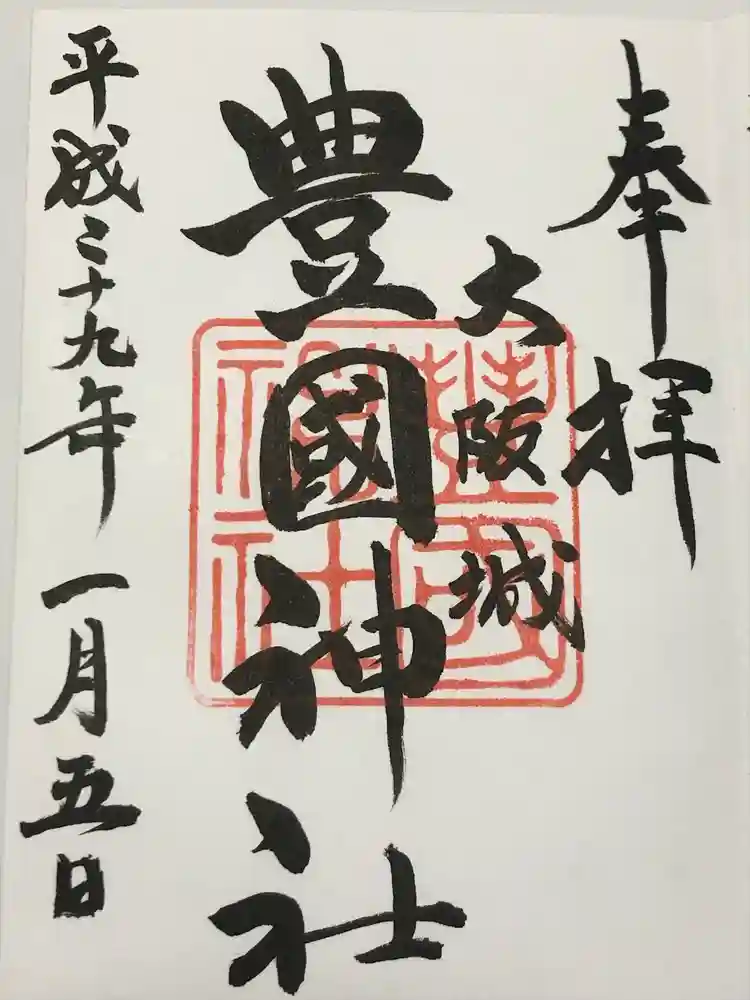 奉拝
大阪城
豊國神社
豊國神社
平成二十九年一月五日